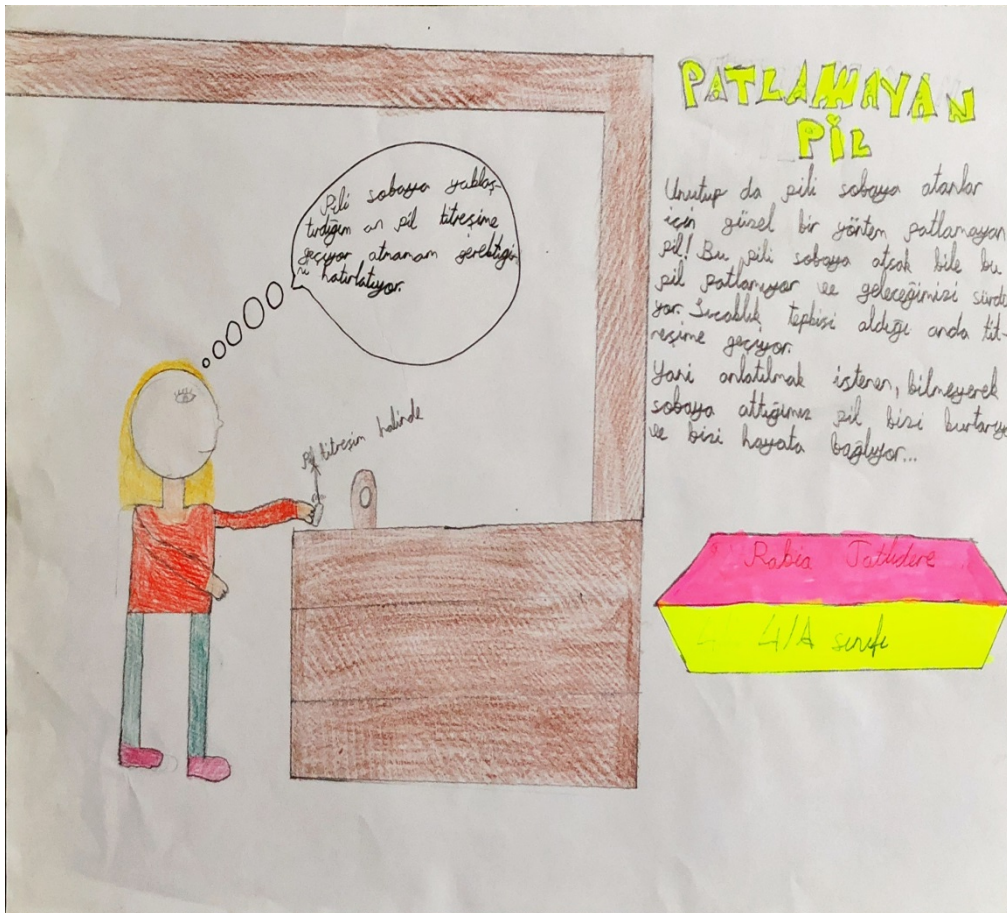 PATLAMAYAN
PİL
Unutup da pili sobaya atanlar
için güzel bir yöntem patlamayan
pil! Bu pili sobaya atsak bile bu
pil patlamıyor ve geleceğimizi sürdü
yor. Sıcaklık tepkisi aldığı anda tit-
reşime geçiyor.
Yani anlatılmak istenen, bilmeyerek
sobaya attığımız pil bizi kurtarıyo
ve bizi hayata bağlıyor...
Pili sobaya yaklaş-
tırdığım an pil titreşime
geçiyor atmamam gerektiğin
ni hatırlatıyor.
Pil titreşim halinde
Rabia Tatlıdere
4/A sınıfı